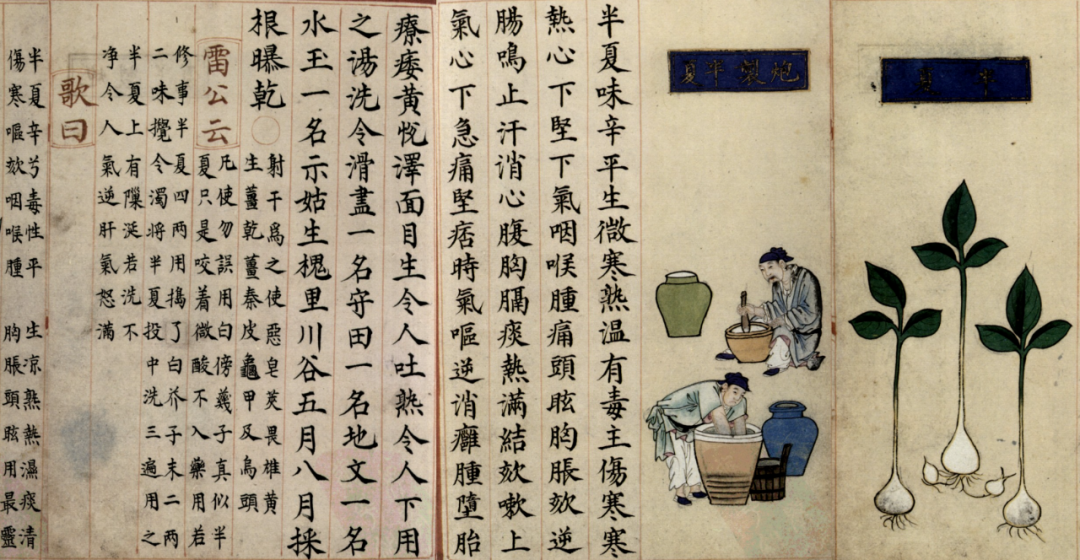 半夏
炮製半夏
半夏味辛平生微寒熟溫有毒主傷寒寒
熱心下堅下氣咽喉腫痛頭眩胸脹欬逆
腸鳴止汗消心腹胸膈痰熱滿結欬嗽上
氣心下急痛堅痞時氣嘔逆消癰腫墮胎
療痿黃悅澤面目生令人吐熟令人下用
之湯洗令滑盡一名守田一名地文一名
水玉一名示姑生槐里川谷五月八月採
根曝乾○
射干為之使惡皂莢畏雄黃
生薑乾薑秦皮龜甲反烏頭
雷公云
凡使勿誤用白傍子真似半
夏只是咬着微酸不入藥用若
修事半夏四兩用搗了白芥子末二兩
二味攪令濁將半夏投中洗三遍用之
半夏上有隟涎若洗不
淨令人氣逆肝氣怒滿
歌曰
半夏辛兮毒性平 生涼熟熱濕痰清
傷寒嘔欬咽喉腫 胸脹頭眩用最靈